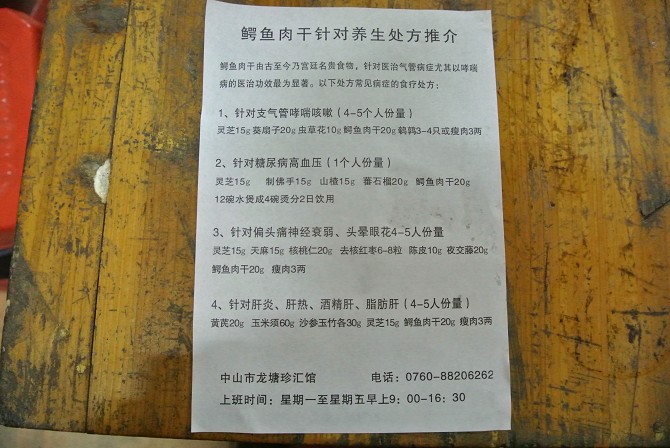 鳄鱼肉干针对养生处方推介
鳄鱼肉干由古至今乃宫廷名贵食物，针对医治气管病症尤其以哮喘
病的医治功效最为显著。以下处方常见病症的食疗处方：
1、针对支气管哮喘咳嗽（4-5个人份量）
灵芝15g 葵扇子20g 虫草花10g 鳄鱼肉干20g 鹌鹑3-4只或瘦肉3两
2、针对糖尿病高血压（1个人份量）
灵芝15g 制佛手15g 山楂15g 蕃石榴20g 鳄鱼肉干20g
12碗水煲成4碗烫分2日饮用
3、针对偏头痛神经衰弱、头晕眼花4-5人份量
灵芝15g 天麻15g 核桃仁20g 去核红枣6-8粒 陈皮10g 夜交藤20g
鳄鱼肉干20g 瘦肉3两
4、针对肝炎、肝热、酒精肝、脂肪肝（4-5人份量）
黄芪20g 玉米须60g 沙参玉竹各30g 灵芝15g 鳄鱼肉干20g 瘦肉3两
中山市龙塘珍汇馆 电话：0760-88206262
上班时间：星期一至星期五早上9：00-16：30